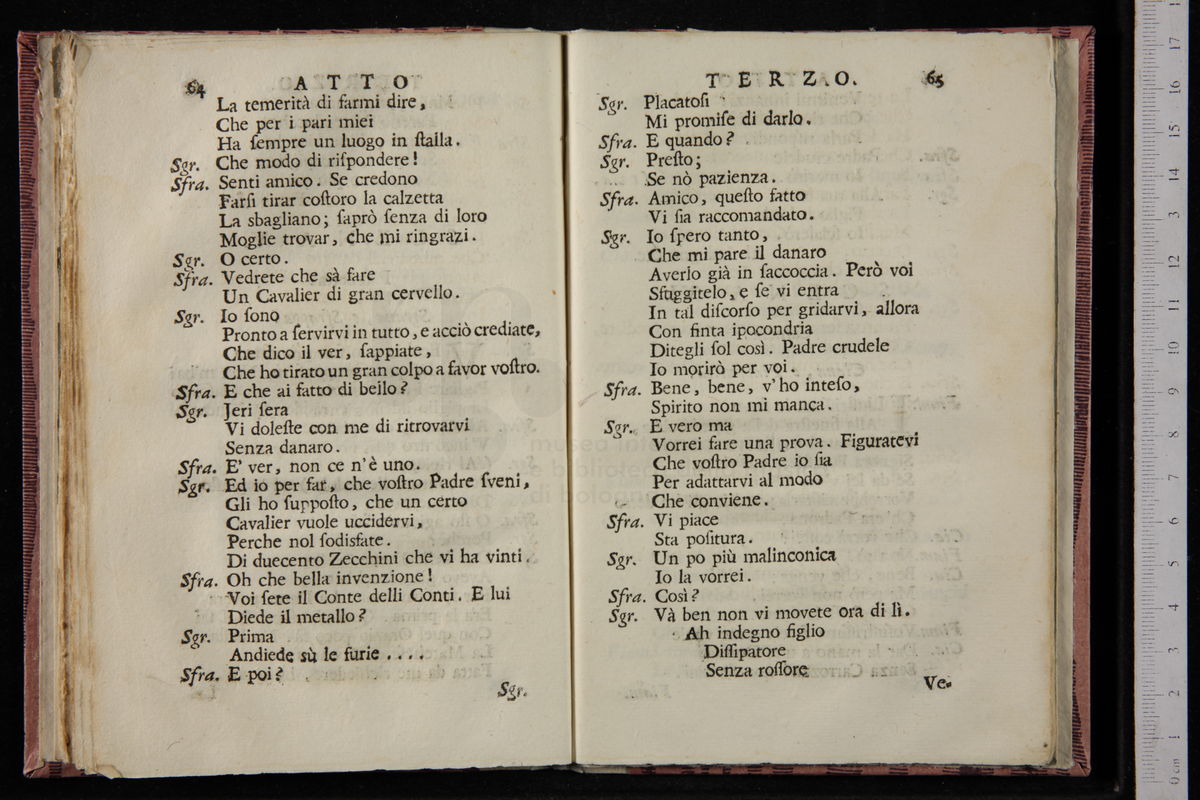 64 ATTO
La temerità di farmi dire,
Che per i pari miei
Ha ſempre un luogo in ſtalla.
Sgr. Che modo di riſpondere!
Sfra. Senti amico. Se credono
Farſi tirar coſtoro la calzetta
La sbagliano; ſaprò ſenza di loro
Moglie trovar, che mi ringrazi.
Sgr. O certo.
Sfra. Vedrete che sà fare
Un Cavalier di gran cervello.
Sgr. Io ſono
Pronto a ſervirvi in tutto, e acciò crediate,
Che dico il ver, ſappiate,
Che ho tirato un gran colpo a favor voſtro.
Sfra. E che ai fatto di bello?
Sgr. Jeri ſera
Vi doleſte con me di ritrovarvi
Senza danaro.
Sfra. E' ver, non ce n'è uno.
Sgr. Ed io per far, che voſtro Padre ſveni,
Gli ho ſuppoſto, che un certo
Cavalier vuole uccidervi,
Perche nol ſodisfate.
Di duecento Zecchini che vi ha vinti.
Sfra. Oh che bella invenzione!
Voi ſete il Conte delli Conti. E lui
Diede il metallo?
Sgr. Prima
Andiede sù le furie ....
Sfra. E poi?
Sgr.
TERZO. 65
Sgr. Placatoſi
Mi promiſe di darlo.
Sfra. E quando?
Sgr. Preſto;
Se nò pazienza.
Sfra. Amico, queſto fatto
Vi ſia raccomandato.
Sgr. Io ſpero tanto,
Che mi pare il danaro
Averlo già in ſaccoccia. Però voi
Sfuggitelo, e ſe vi entra
In tal diſcorſo per gridarvi, allora
Con finta ipocondria
Ditegli ſol così. Padre crudele
Io morirò per voi.
Sfra. Bene, bene, v'ho inteſo,
Spirito non mi manca.
Sgr. E vero ma
Vorrei fare una prova. Figuratevi
Che voſtro Padre io ſia
Per adattarvi al modo
Che conviene.
Sfra. Vi piace
Sta poſitura.
Sgr. Un po più malinconica
Io la vorrei.
Sfra. Così?
Sgr. Và ben non vi movete ora di lì.
Ah indegno figlio
Diſſipatore
Senza roſſore
Ve-
museo
e bibliote
di bologna
0 cm 1 2 3 4 5 6 7 8 9 10 11 12 13 14 15 16 17